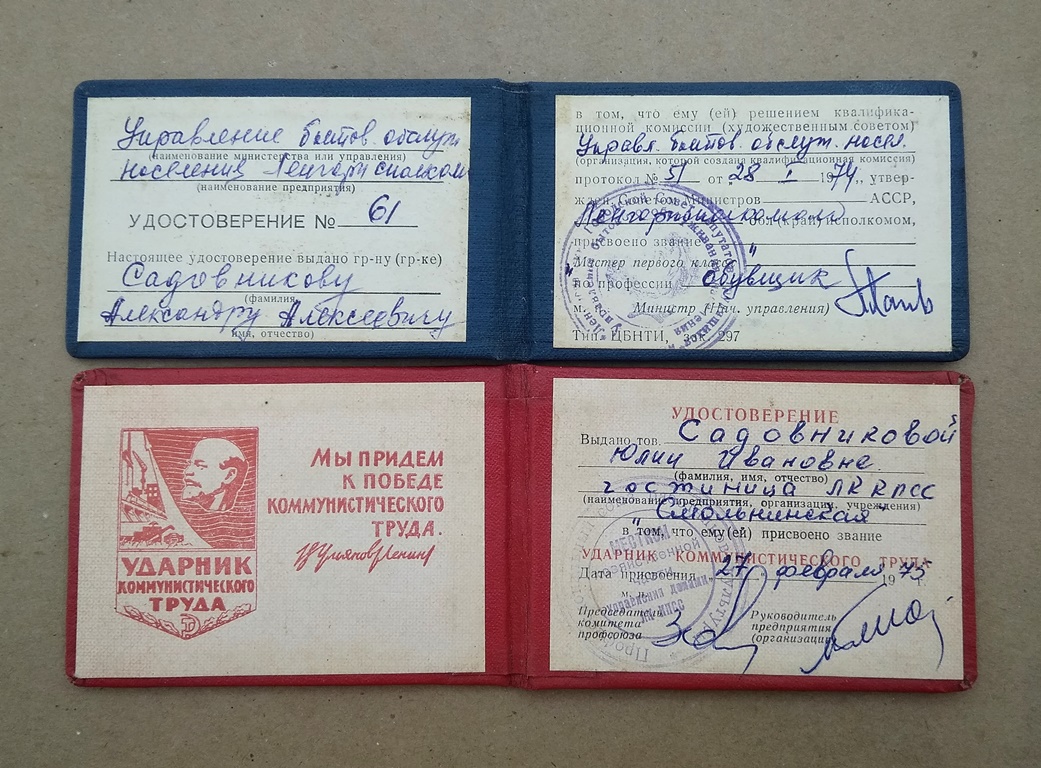 Управление бытов. обслуж
(наименование министерства или управления)
населения Ленгорисполком
(наименование предприятия)
УДОСТОВЕРЕНИЕ № 61
Настоящее удостоверение выдано гр-ну (гр-ке)
Садовникову
(фамилия,
Александру Алексеевичу
имя, отчество)
в том, что ему (ей) решением квалифика-
ционной комиссии (художественным советом)
Управл. бытов. обслуж. насел.
(организация, которой создана квалификационная комиссия)
протокол № 51 от „28 I 1974 г., утвер-
жден Советом Министров АССР,
обл(край)исполкомом,
присвоено звание
„Мастер первого класса"
по профессии обувщик
м. Министр (Нач. управления)
Тип. ЦБНТИ, зак. 297
УДАРНИК
КОММУНИСТИЧЕСКОГО
ТРУДА
МЫ ПРИДЕМ
К ПОБЕДЕ
КОММУНИСТИЧЕСКОГО
ТРУДА.
В Ульянов (Ленин)
УДОСТОВЕРЕНИЕ
Выдано тов. Садовниковой
Юлии Ивановне
(фамилия, имя, отчество)
гостиница ЛК КПСС
(наименование предприятия, организации, учреждения)
"Смольнинская"
в том, что ему(ей) присвоено звание
УДАРНИК КОММУНИСТИЧЕСКОГО ТРУДА
Дата присвоения „27" февраля 1975 г.
м. п.
Председатель
комитета
профсоюза
Руководитель
предприятия
(организации)